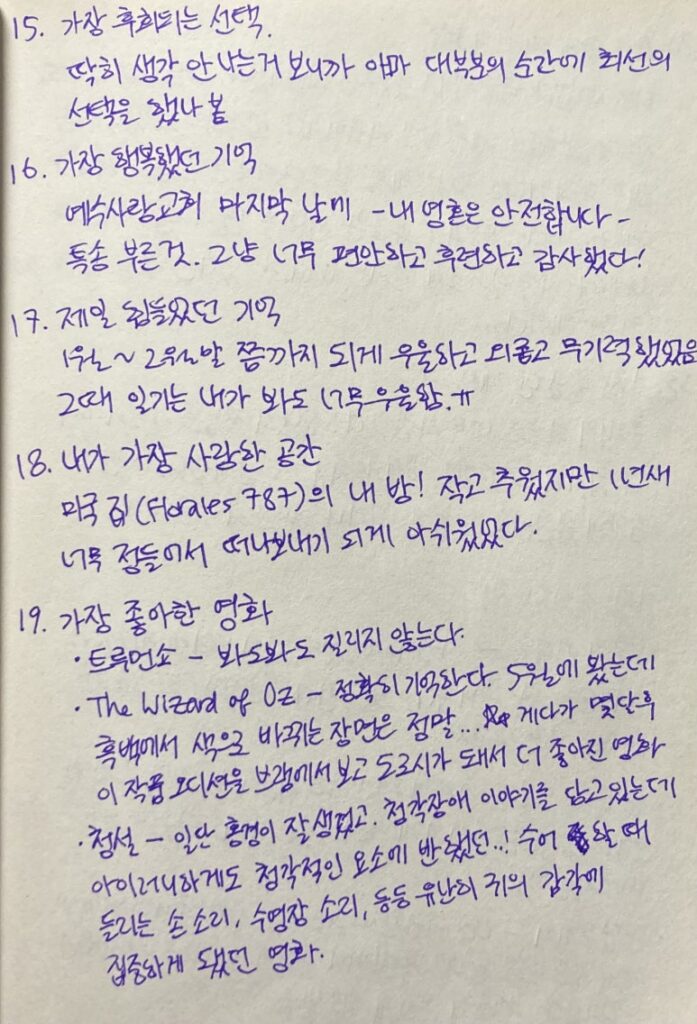 15. 가장 후회되는 선택.
딱히 생각 안 나는거 보니까 아마 대부분의 순간에 최선의
선택을 했나 봄
16. 가장 행복했던 기억
예수사랑교회 마지막 날에 - 내 영혼은 안전합니다 -
특송 부른것. 그냥 너무 편안하고 후련하고 감사했다!
17. 제일 힘들었던 기억
1월 ~ 2월말 쯤까지 되게 우울하고 외롭고 무기력했었음
그때 일기는 내가 봐도 너무우울함.ㅠ
18. 내가 가장 사랑한 공간
미국 집(Florales 787)의 내 방! 작고 추웠지만 1년새
너무 정들어서 떠나보내기 되게 아쉬웠었다.
19. 가장 좋아한 영화
· 트루먼쇼 - 봐도봐도 질리지 않는다.
· The Wizard of Oz - 정확히 기억한다. 5월에 봤는데
흑백에서 색으로 바뀌는 장면은 정말... 게다가 몇달후
이 작품 오디션을 브랭에서 보고 도로시가 돼서 더 좋아진 영화
· 청설 - 일단 홍경이 잘생겼고. 청각장애 이야기를 담고있는데
아이러니하게도 청각적인 요소에 반했던..! 수어 할 때
들리는 손 소리, 수영장 소리, 등등 유난히 귀의 감각에
집중하게 됐던 영화.